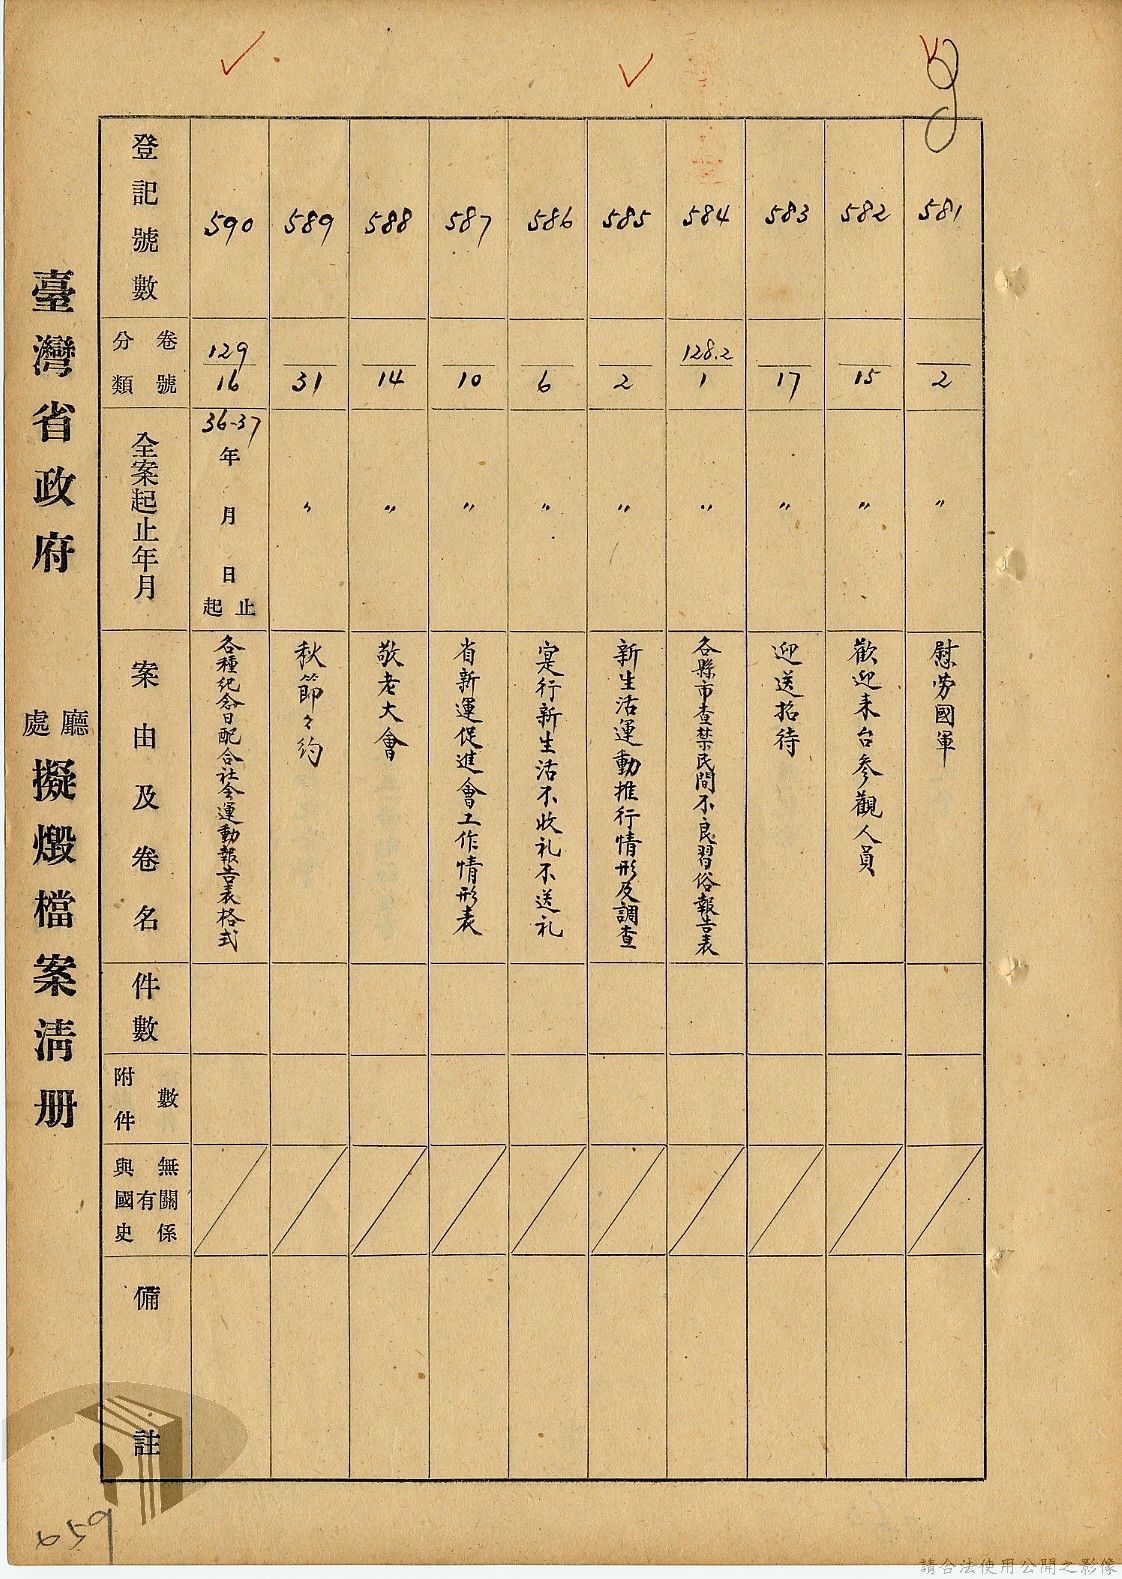 臺灣省政府 處廳 擬燬檔案清册
登記號數
分類 卷號
全案起止年月
案由及卷名
件數
附件 數
與國史 有 無關係
備註
590
129
16
36-37
年 月 日 起止
各種紀念日配合社会運動報告表格式
589
31
〃
秋節々約
588
14
〃
敬老大會
587
10
〃
省新運促進會工作情形表
586
6
〃
寔行新生活不收礼不送礼
585
2
〃
新生活運動推行情形及調查
584
128.2
1
〃
各縣市查禁民間不良習俗報告表
583
17
〃
迎送招待
582
15
〃
歡迎来台參觀人員
581
2
〃
慰劳國軍
059
請合法使用公開之影像